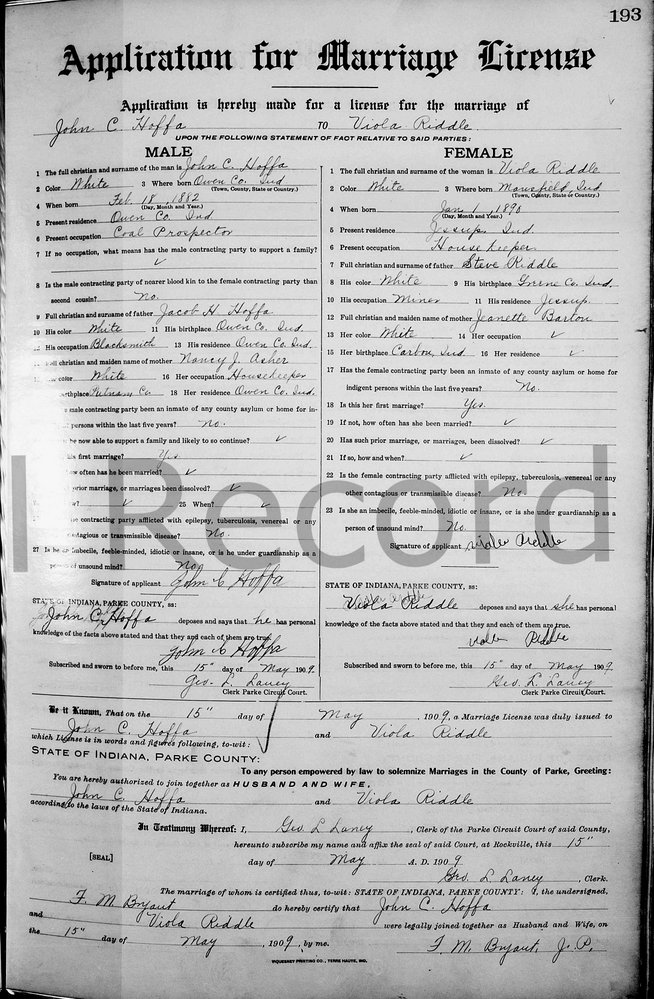 193
Application for Marriage License
Application is hereby made for a license for the marriage of
John C. Hoffa TO Viola Riddle.
UPON THE FOLLOWING STATEMENT OF FACT RELATIVE TO SAID PARTIES:
MALE
1 The full christian and surname of the man is John C. Hoffa
2 Color White 3 Where born Owen Co. Ind
(Town, County, State or Country.)
4 When born Feb. 18, 1882
(Day, Month and Year.)
5 Present residence Owen Co Ind
6 Present occupation Coal Prospector
7 If no occupation, what means has the male contracting party to support a family?
✓
8 Is the male contracting party of nearer blood kin to the female contracting party than
second cousin? No.
9 Full christian and surname of father Jacob H Hoffa
10 His color White 11 His birthplace Owen Co. Ind.
His occupation Blacksmith 13 His residence Owen Co. Ind.
full christian and maiden name of mother Nancy J. Asher
color White 16 Her occupation Housekeeper
birthplace Putnam Co 18 Her residence Owen Co. Ind.
male contracting party been an inmate of any county asylum or home for in-
persons within the last five years? No.
he now able to support a family and likely to so continue? ✓
his first marriage? Yes
how often has he been married? ✓
prior marriage, or marriages been dissolved? ✓
✓ 25 When? ✓
contracting party afflicted with epilepsy, tuberculosis, venereal or any
contagious or transmissible disease? No.
27 Is he an imbecile, feeble-minded, idiotic or insane, or is he under guardianship as a
person of unsound mind? No.
Signature of applicant John C Hoffa
STATE OF INDIANA, PARKE COUNTY, ss:
John C. Hoffa deposes and says that he has personal
knowledge of the facts above stated and that they and each of them are true.
John C Hoffa
Subscribed and sworn to before me, this 15" day of May 1909.
Geo. L. Laney
Clerk Parke Circuit Court.
FEMALE
1 The full christian and surname of the woman is Viola Riddle
2 Color White 3 Where born Mansfield, Ind
(Town, County, State or Country.)
4 When born Jan 1, 1890
(Day, Month and Year.)
5 Present residence Jessup. Ind.
6 Present occupation House keeper
7 Full christian and surname of father Steve Riddle
8 His color White 9 His birthplace Greene Co. Ind.
10 His occupation Miner 11 His residence Jessup.
12 Full christian and maiden name of mother Jeanette Barton
13 Her color White 14 Her occupation ✓
15 Her birthplace Carbon, Ind 16 Her residence ✓
17 Has the female contracting party been an inmate of any county asylum or home for
indigent persons within the last five years? No.
18 Is this her first marriage? Yes.
19 If not, how often has she been married? ✓
20 Has such prior marriage, or marriages, been dissolved? ✓
21 If so, how and when? ✓
22 Is the female contracting party afflicted with epilepsy, tuberculosis, venereal or any
other contagious or transmissible disease? No.
23 Is she an imbecile, feeble-minded, idiotic or insane, or is she under guardianship as a
person of unsound mind? No.
Signature of applicant Viola Riddle
STATE OF INDIANA, PARKE COUNTY, ss:
Viola Riddle deposes and says that she has personal
knowledge of the facts above stated and that they and each of them are true.
Viola Riddle
Subscribed and sworn to before me, this 15" day of May 1909.
Geo. L. Laney
Clerk Parke Circuit Court.
Be it Known, That on the 15" day of May, 1909, a Marriage License was duly issued to
John C. Hoffa and Viola Riddle
which License is in words and figures following, to-wit:
STATE OF INDIANA, PARKE COUNTY:
To any person empowered by law to solemnize Marriages in the County of Parke, Greeting:
You are hereby authorized to join together as HUSBAND AND WIFE,
John C. Hoffa and Viola Riddle
according to the laws of the State of Indiana.
In Testimony Whereof: I, Geo L Laney, Clerk of the Parke Circuit Court of said County,
hereunto subscribe my name and affix the seal of said Court, at Rockville, this 15"
[SEAL] day of May A. D. 1909
Geo. L. Laney, Clerk.
The marriage of whom is certified thus, to-wit: STATE OF INDIANA, PARKE COUNTY: I, the undersigned,
F. M. Bryant do hereby certify that John C. Hoffa
and Viola Riddle were legally joined together as Husband and Wife, on
the 15" day of May, 1909, by me. F. M. Bryant. J. P.
VIQUESNEY PRINTING CO., TERRE HAUTE, IND.
Record